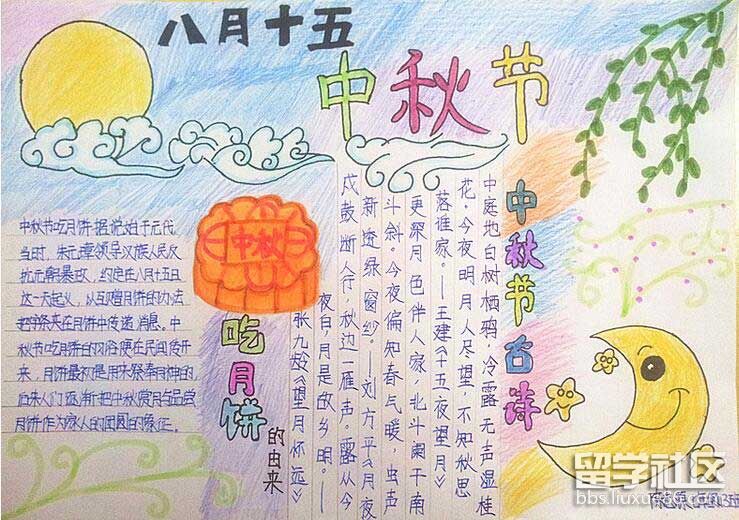 八月十五
中秋节
中秋
吃月饼
的由来
中秋节吃月饼据说始于元代
当时，朱元璋领导汉族人民反
抗元朝暴政，约定在八月十五日
这一天起义，以互赠月饼的办法
把字条夹在月饼中传递消息。中
秋节吃月饼的习俗便在民间传开
来，月饼最初是用来祭奉月神的
后来人们逐渐把中秋赏月与品尝
月饼作为家人的团圆的象征。
中秋节古诗
中庭地白树栖鸦，冷露无声湿桂
花。今夜明月人尽望，不知秋思
落谁家。——王建《十五夜望月》
更深月色伴人家，北斗阑干南
斗斜。今夜偏知春气暖，虫声
新透绿窗纱。——刘方平《月夜
戍鼓断人行，秋边一雁声。露从今
夜白，月是故乡明。——
张九龄《望月怀远》
留学社区
bbs.liuxue86.com